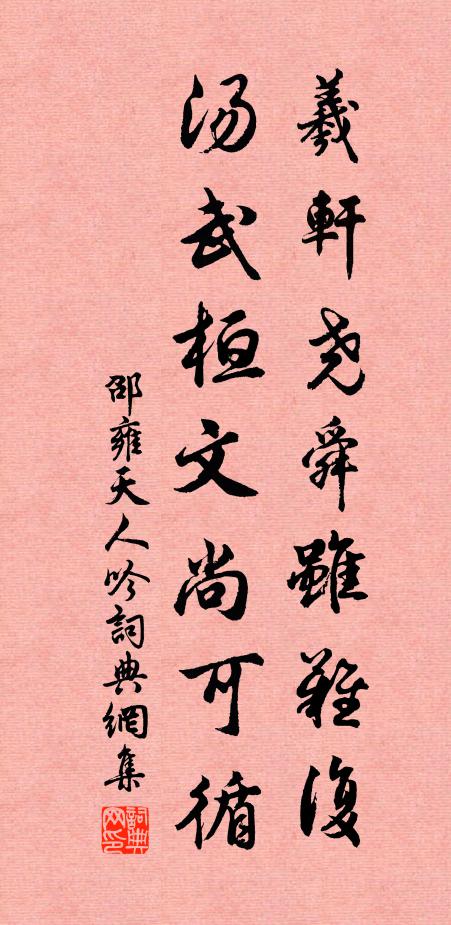 羲軒尧舜雖難復
湯武桓文尚可循
邵雍天人吟詞典網集
詞典网印